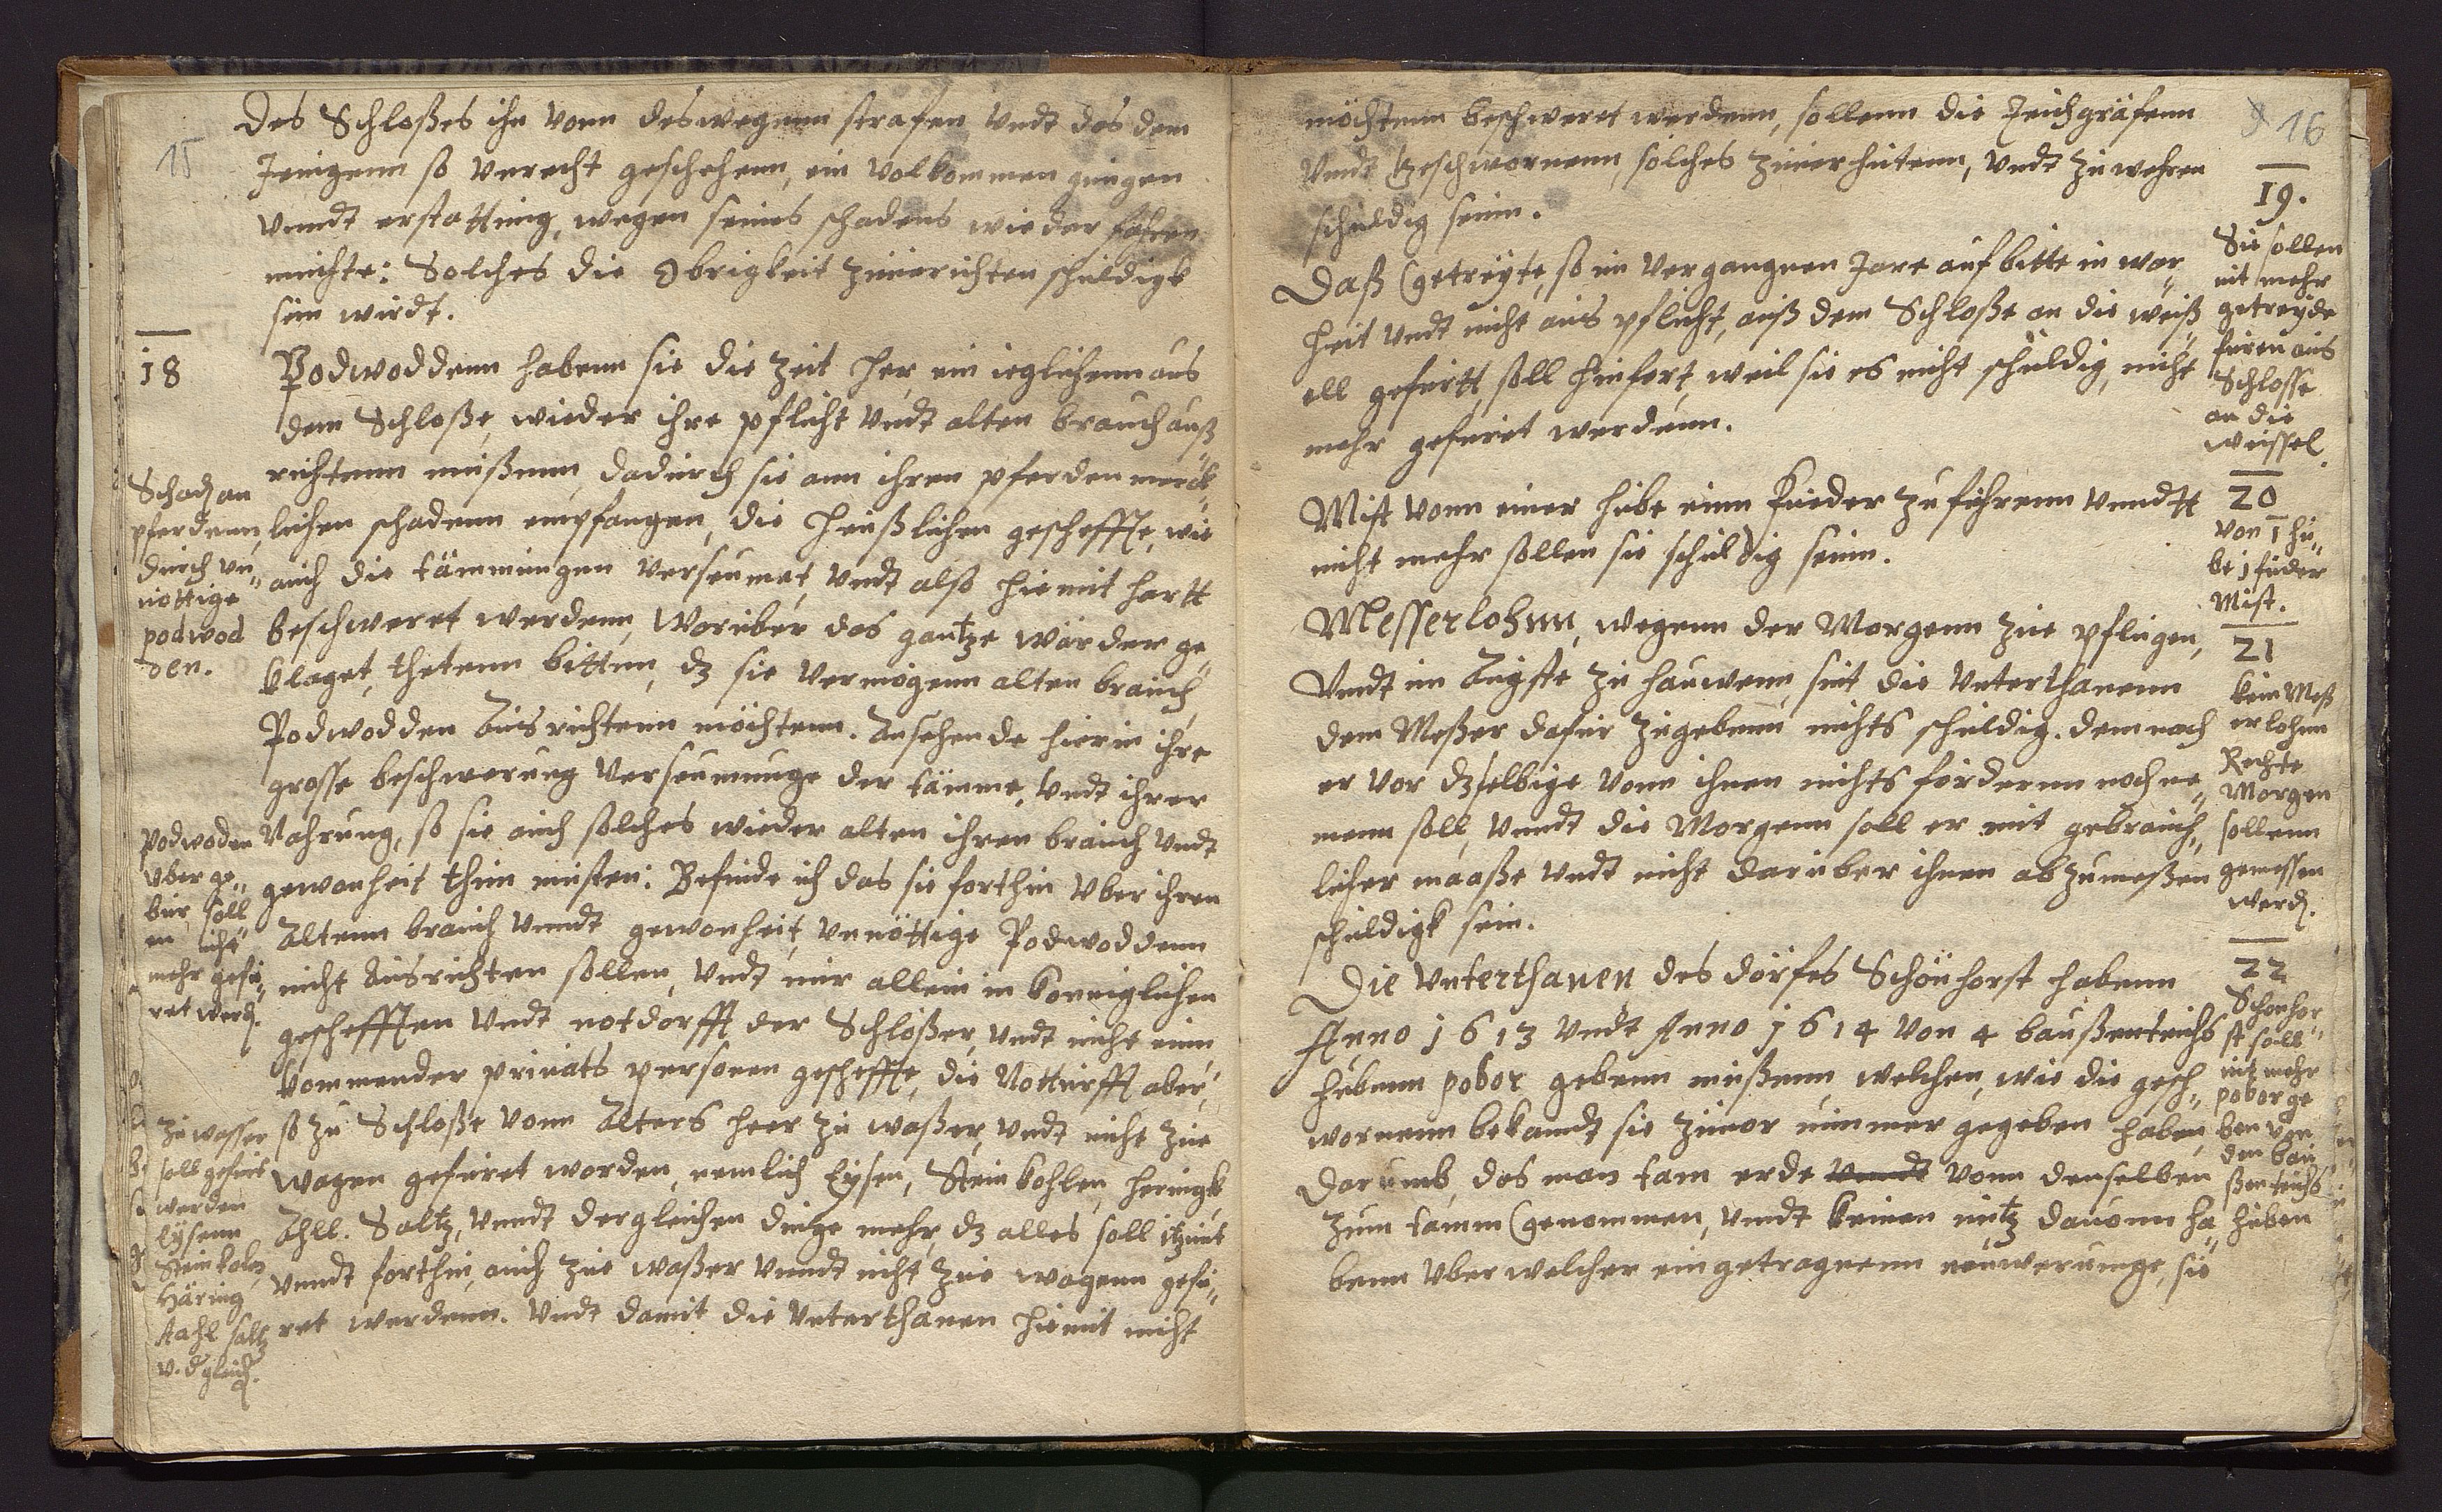 15
Des Schloßes ihn vonn deswegenn strafen vndt das dem
Jenigenn so vnrecht geschehenn, ein volkommen gnügen
vnndt erstattung, wegen seines schadens wiederfahren
müchte: Solches die Obrigkeit zuuerichten schuldigk
sein wirdt.
18
Podwoddenn habenn sie die Zeit her, ein ieglichenn aus
dem Schloße, wieder ihre pflicht vndt alten brauch auß„
richtenn müßenn, dadurch sie ann ihren pferden merck„
lichen schadenn empfangen, die heußlichen gescheffte, wie
auch die tämmungen verseumet, vndt also hiemit hartt
beschweret werdenn, Worüber das gantze wärder ge„
klaget, thetenn bittenn, dz sie vermögenn alten brauch,
Podwodden Ausrichtenn möchtenn. Ansehende hierin ihre
grosse beschwerung verseumunge der tämme, vndt ihrer
Nahrung, so sie auch solches wieder alten ihren brauch vndt
gewonheit thun müsten: Befinde ich das sie forthin vber ihren
Altenn brauch vnndt gewonheit, vnnöttige Podwoddenn
nicht Ausrichten sollen, vndt nur allein in konniglichen
geschefften vndt notdorfft der Schlößer, vndt nicht einn
kommender priuats personen gescheffte, die Notturfft aber,
so zu Schloße vonn Alters heer zu waßer, vndt nicht zue
wagen gefüret worden, nemlich Eysen, Steinkohlen, heringk,
Ahll. Saltz, vnndt dergleichen dinge mehr, dz alles soll itzunt
vnndt forthin, auch zue waßer vnndt nicht zue wagenn gefü„
ret werdenn. Vndt damit die Vnterthanen hiemit nicht
Schad an
pferdenn,
durch vn„
nöttige
podwod
den.
Podwoden
vber ge„
bür soll
en nicht
mehr gefü„
ret werd.
Zu wasser
soll gefürt
werden
Eysenn
Steinkoln,
Häring
Aahl saltz
v. dgleich.
16
möchtenn beschweret werdenn, sollenn die Teichgräfenn
vnndt Geschwornenn solches zuuerhütenn, vndt zu wehren
schuldig seinn.
Daß Getreyte, so im vergangnen Jare auf bitte in war„
heit vndt nicht aus pflicht, auß dem Schloße an die weiß„
ell gefürtt, soll hinfort, weil sie es nicht schuldig, nicht
mehr gefüret werdenn.
Mist vonn einer hube einn Fueder zuführenn vnndtt
nicht mehr sollen sie schuldig seinn.
Messerlohnn, wegenn der Morgenn zue pflügen,
Vndt im Augste zu hauwenn, sint die Vnterthanenn
dem Meßer dafür zugebenn nichts schuldig. demnach
er vor dzselbige vonn ihnen nichts fordernn noch ne„
menn soll, vnndt die Morgenn soll er mit gebreuch„
licher maaße vndt nicht darüber ihnen abzumeßen
schuldigk sein.
Die Vnterthanen des dorfes Schönhorst habenn
Anno 1613 vndt Anno 1614 von 4 baußenteichs
hubenn pobor gebenn müßenn, welchen, wie die gesch„
wornenn bekandt sie zuuor nimmer gegeben haben,
darumb, das man tam erde vnndt vonn denselben
zum tamm Genommen, vnndt keinen nutz dauonn ha„
benn vber welcher eingetragnenn neuwerunge, sie
19.
Sie sollen
nit mehr
getreyde
füren aus
Schlosse
an die
weissel.
20
von 1 hu„
be 1 fuder
Mist.
21
kein Meß
erlohnn
Rechte
Morgen
sollenn
gemessen
werd.
22
Schonhor„
st soll
nit mehr
pobor ge
ben von
den bau
ßenteichs
huben